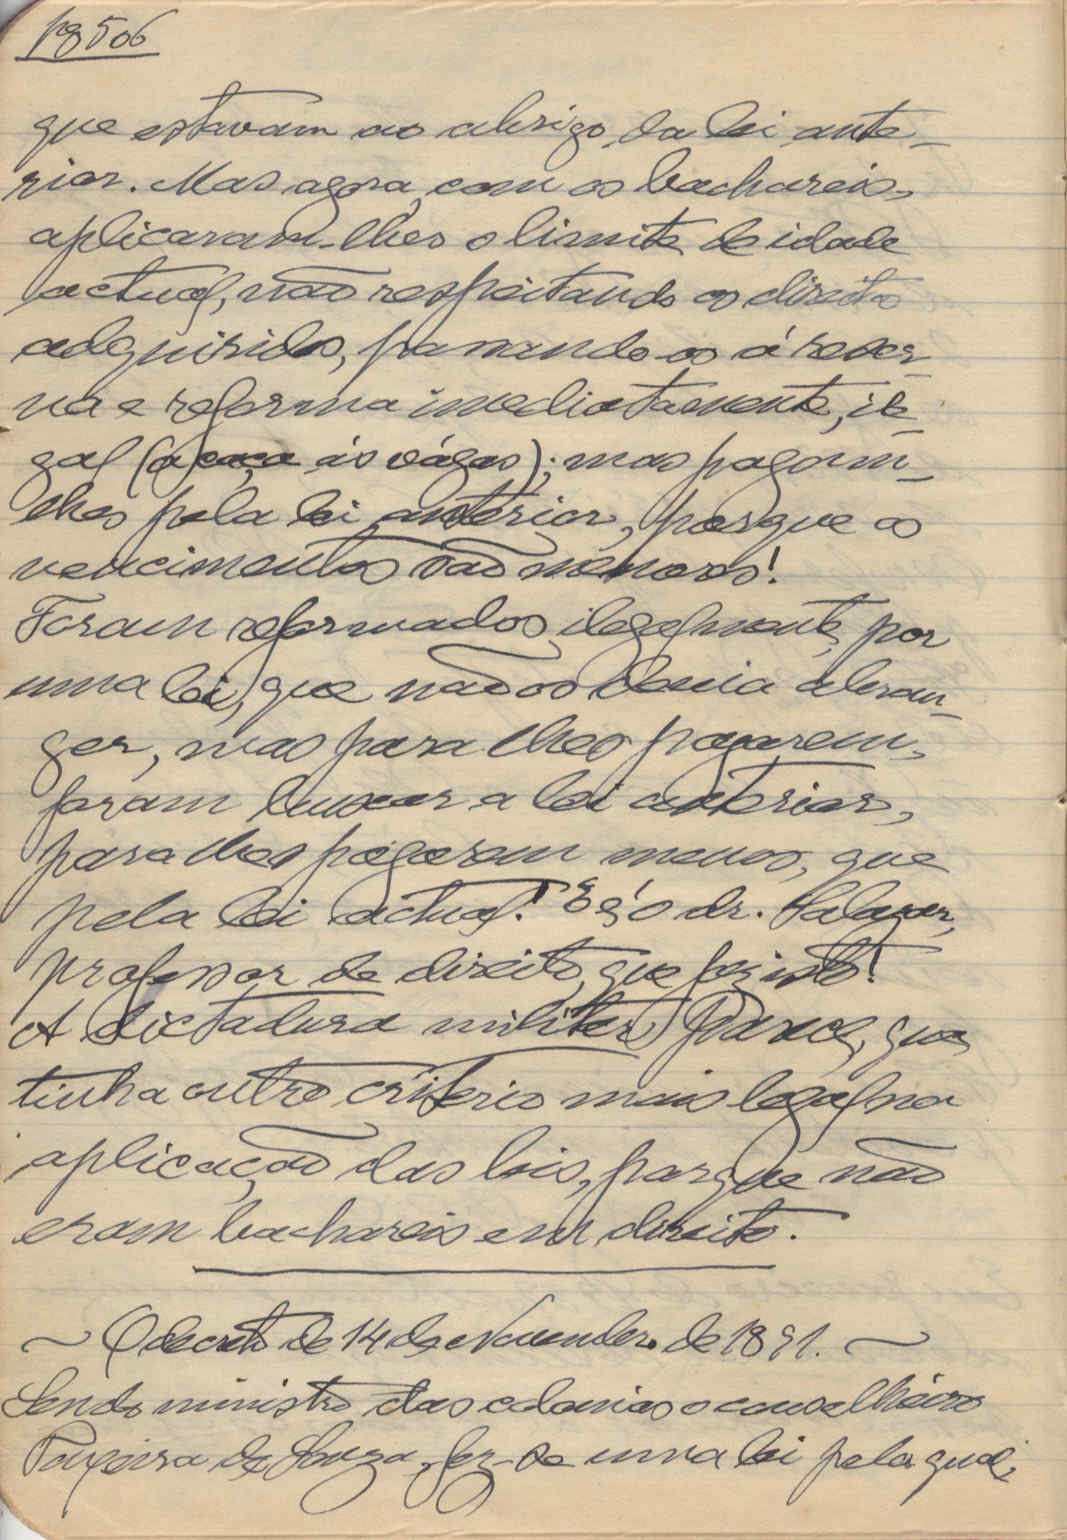 pg 506
que estavam ao abrigo da lei ante-
rior. Mas agora, com os bachareis,
aplicaram-lhes o limite de idade
actual, não respeitando os direitos
adquiridos, passando-os á reser-
va e reforma imediatamente, ile-
gal (a caça ás vágas); mas pagam-
lhes pela lei anterior, porque os
vencimentos são menores!
Foram reformados ilegalmente, por
uma lei, que não os devia abran-
ger, mas para lhes pagarem,
foram buscar a lei anterior,
para lhes pagarem menos, que
pela lei actual! E é o dr. Salazar,
professor de direito, que fez isto!
A dictadura militar, parece, que
tinha outro critério mais legal na
aplicação das leis, porque não
eram bachareis em direito.
~ O decreto de 14 de Novembro de 1891. ~
Sendo ministro das colonias o conselheiro
Teixeira de Souza, fez-se uma lei pela qual,